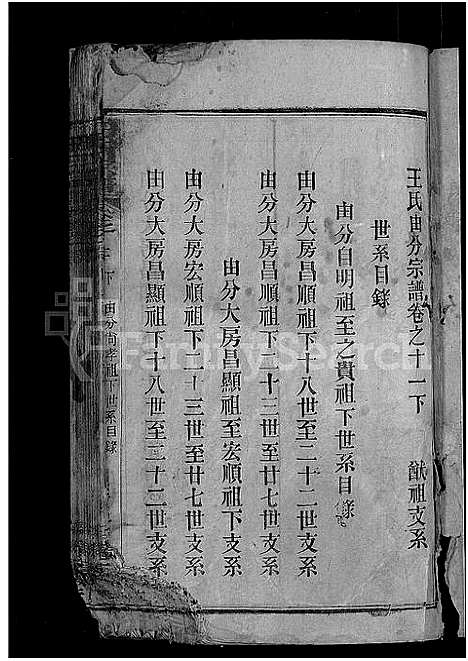 王氏由分宗譜卷之十一下　猷祖支系
世系目錄
由分自明祖至之貴祖下世系目錄
由分大房昌順祖下十八世至二十二世支系
由分大房昌順祖下二十三世至廿七世支系
由分大房昌顯祖至宏順祖下支系
由分大房宏順祖下二十三世至廿七世支系
由分大房昌顯祖下十八世至二十二世支系
下　由分尚孝祖下世系目錄
FamilySearch